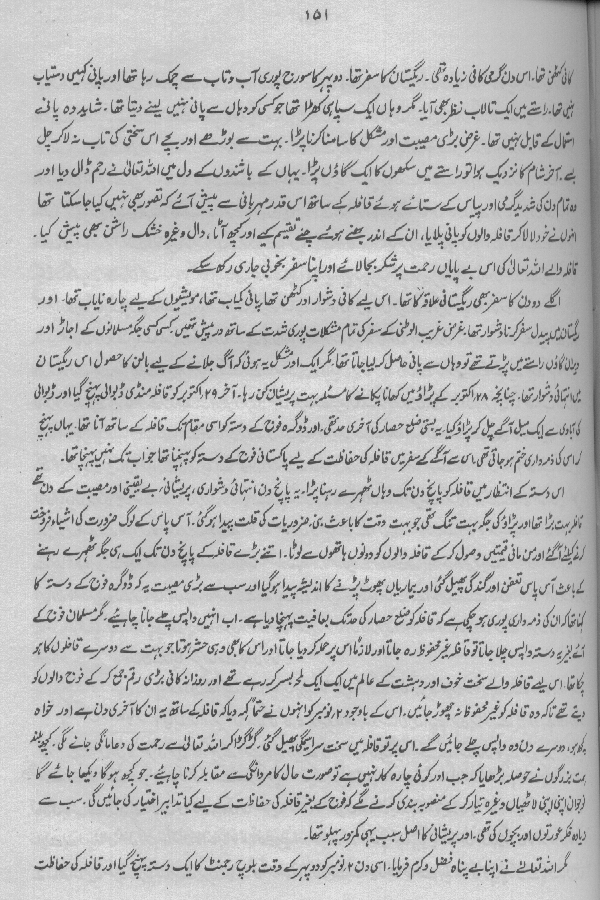 ۱۵۱
کافی کٹھن تھا۔ اس دن گرمی کافی زیادہ تھی۔ ریگستان کا سفر تھا۔ دوپہر کا سورج پوری آب و تاب سے چمک رہا تھا اور پانی کہیں دستیاب
نہیں تھا۔ راستے میں ایک تالاب نظر بھی آیا۔ مگر وہاں ایک سپاہی کھڑا تھا جو کسی کو وہاں سے پانی نہیں پینے دیتا تھا۔ شاید وہ پانی
استعمال کے قابل نہیں تھا۔ غرض بڑی مصیبت اور مشکل کا سامنا کرنا پڑا۔ بہت سے بوڑھے اور بچے اس سختی کی تاب نہ لا کر چل
بسے۔ آخر شام کا نزدیک ہوا تو راستے میں سکھوں کا ایک گاؤں پڑا۔ یہاں کے باشندوں کے دل میں اللہ تعالیٰ نے رحم ڈال دیا اور
وہ تمام دن کی شدید گرمی اور پیاس کے ستائے ہوئے قافلہ کے ساتھ اس قدر مہربانی سے پیش آئے کہ تصور بھی نہیں کیا جا سکتا تھا
انہوں نے خود لا لا کر قافلہ والوں کو پانی پلایا، ان کے اندر بھنے ہوئے چنے تقسیم کیے اور کچھ آٹا، دال وغیرہ خشک راشن بھی پیش کیا۔
قافلہ والے اللہ تعالیٰ کی اس بے پایاں رحمت پر شکر بجا لائے اور اپنا سفر بخوبی جاری رکھ سکے۔
اگلے دو دن کا سفر بھی ریگستانی علاقہ کا تھا۔ اس لیے کافی دشوار اور کٹھن تھا پانی کمیاب تھا، مویشیوں کے لیے چارہ نایاب تھا۔ اور
ریگستان میں پیدل سفر کرنا دشوار تھا، غرض غریب الوطنی کے سفر کی تمام مشکلات پوری شدت کے ساتھ درپیش تھیں۔ کسی کسی جگہ مسلمانوں کے اجاڑ اور
ویران گاؤں راستے میں پڑتے تھے تو وہاں سے پانی حاصل کر لیا جاتا تھا، مگر ایک اور مشکل یہ ہوئی کہ آگ جلانے کے لیے بالن کا حصول اس ریگستان
میں انتہائی دشوار تھا۔ چنانچہ ۲۸ اکتوبر کے پڑاؤ میں کھانا پکانے کا مسئلہ بہت پریشان کن رہا۔ آخر ۲۹ اکتوبر کو قافلہ منڈی ڈبوالی پہنچ گیا اور ڈبوالی
کی آبادی سے ایک میل آگے چل کر پڑاؤ کیا، یہ بستی ضلع حصار کی آخری حد تھی۔ اور ڈوگرہ فوج کے دستہ کو اسی مقام تک قافلہ کے ساتھ آنا تھا۔ یہاں پہنچ
کر اس کی ذمہ داری ختم ہو جاتی تھی، اس سے آگے کے سفر میں قافلہ کی حفاظت کے لیے پاکستانی فوج کے دستہ کو پہنچنا تھا جو اب تک نہیں پہنچا تھا۔
اس دستہ کے انتظار میں قافلہ کو پانچ دن تک وہاں ٹھہرے رہنا پڑا۔ یہ پانچ دن انتہائی دشواری، پریشانی، بے یقینی اور مصیبت کے دن تھے
قافلہ بہت بڑا تھا اور پڑاؤ کی جگہ بہت تنگ تھی جو بہت دقت کا باعث بنی، ضروریات کی قلت پیدا ہو گئی۔ آس پاس کے لوگ ضرورت کی اشیاء فروخت
کرنے کیلئے آ گئے اور من مانی قیمتیں وصول کر کے قافلہ والوں کو دونوں ہاتھوں سے لوٹا۔ اتنے بڑے قافلہ کے پانچ دن تک ایک ہی جگہ ٹھہرے رہنے
کے باعث آس پاس تعفن اور گندگی پھیل گئی اور بیماریاں پھوٹ پڑنے کا اندیشہ پیدا ہو گیا اور سب سے بڑی مصیبت یہ کہ ڈوگرہ فوج کے دستہ کا
کہنا تھا کہ ان کی ذمہ داری پوری ہو چکی ہے کہ قافلہ کو ضلع حصار کی حد تک بعافیت پہنچا دیا ہے۔ اب انہیں واپس چلے جانا چاہئیے۔ مگر مسلمان فوج کے
آئے بغیر یہ دستہ واپس چلا جاتا تو قافلہ غیر محفوظ رہ جاتا اور لازماً اس پر حملہ کر دیا جاتا اور اس کا بھی وہی حشر ہوتا جو بہت سے دوسرے قافلوں کا ہو
چکا تھا۔ اس لیے قافلہ والے سخت خوف اور دہشت کے عالم میں ایک ایک لمحہ بسر کر رہے تھے اور روزانہ کافی بڑی رقم جمع کر کے فوج والوں کو
دیتے تھے تاکہ وہ قافلہ کو غیر محفوظ نہ چھوڑ جائیں۔ اس کے باوجود ۲ نومبر کو انہوں نے حتماً کہہ دیا کہ قافلہ کے ساتھ یہ ان کا آخری دن ہے اور خواہ
کچھ ہو، دوسرے دن وہ واپس چلے جائیں گے۔ اس پر تو قافلہ میں سخت سراسیمگی پھیل گئی۔ گڑگڑا کر اللہ تعالیٰ سے رحمت کی دعا مانگی جانے لگی۔ کچھ بلند
ہمت بزرگوں نے حوصلہ بڑھایا کہ جب اور کوئی چارہ کار نہیں ہے تو صورت حال کا مردانگی سے مقابلہ کرنا چاہئیے۔ جو کچھ ہو گا دیکھا جائے گا
نوجوان اپنی اپنی لاٹھیاں وغیرہ تیار کر کے منصوبہ بندی کرنے لگے کہ فوج کے بغیر قافلہ کی حفاظت کے لیے کیا تدابیر اختیار کی جائیں گی۔ سب سے
زیادہ فکر عورتوں اور بچوں کی تھی۔ اور پریشانی کا اصل سبب یہی کمزور پہلو تھا۔
مگر اللہ تعالیٰ نے اپنا بے پناہ فضل و کرم فرمایا۔ اسی دن ۲ نومبر کو دوپہر کے وقت بلوچ رجمنٹ کا ایک دستہ پہنچ گیا اور قافلہ کی حفاظت